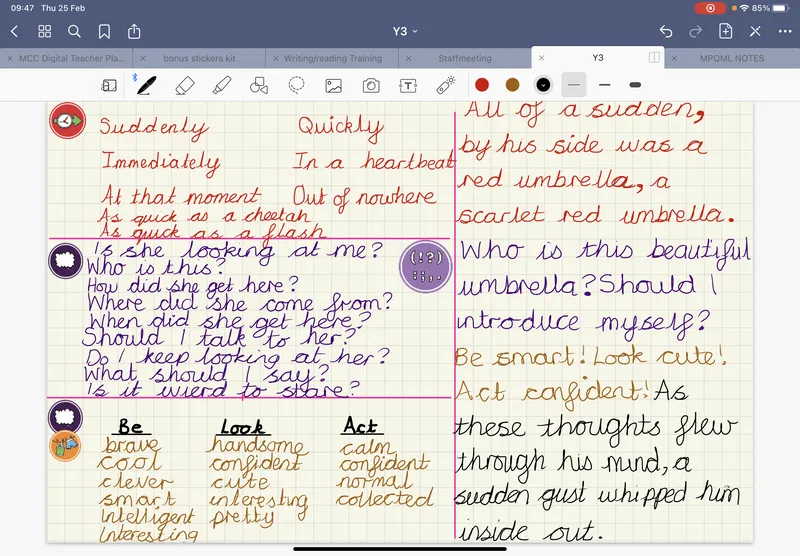 09:47 Thu 25 Feb
85%
Y3
MCC Digital Teacher Pla...
bonus stickers kit
Writing/reading Training
Staffmeeting
Y3
MPQML NOTES
Suddenly Quickly
Immediately In a heartbeat
At that moment Out of nowhere
As quick as a cheetah
As quick as a flash
Is she looking at me?
Who is this?
How did she get here?
Where did she come from?
When did she get here?
Should I talk to her?
Do I keep looking at her?
What should I say?
Is it wierd to stare?
(!?)
:;,.
Be Look Act
brave handsome calm
cool confident confident
clever cute normal
smart interesting collected
intelligent pretty
interesting
All of a sudden,
by his side was a
red umbrella, a
scarlet red umbrella.
Who is this beautiful
umbrella? Should I
introduce myself?
Be smart! Look cute!
Act confident! As
these thoughts flew
through his mind, a
sudden gust whipped him
inside out.